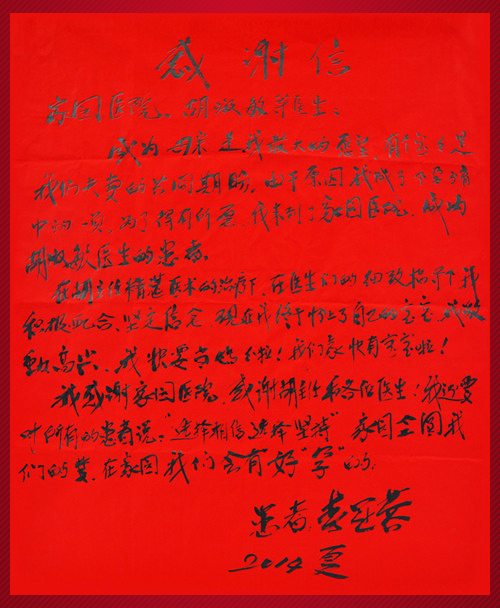 感谢信
家圆医院、胡淑敏等医生：
成为母亲是我最大的愿望，有个宝宝是
我们夫妻的共同期盼。由于原因我成了不孕群
中的一员，为了得有所愿，我来到了家圆医院，成为
胡淑敏医生的患者。
在胡主任精湛医术的治疗下，在医生们的细致指导下我
积极配合、坚定信念，现在我终于怀上了自己的宝宝，我激
动高兴，我快要当妈了啦！我们家快有宝宝啦！
我感谢家圆医院，感谢胡主任和各位医生！我还要
对所有的患者说："选择相信选择坚持" 家圆会圆我
们的梦，在家圆我们会有好"孕"的。
患者：
2014 夏